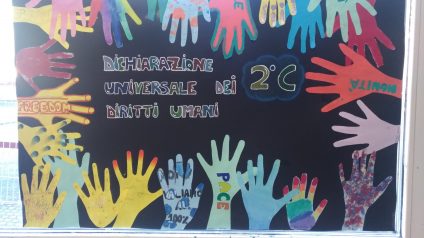 DICHIARAZIONE
UNIVERSALE DEI
DIRITTI UMANI
2°C
FREEDOM
PACE
100%